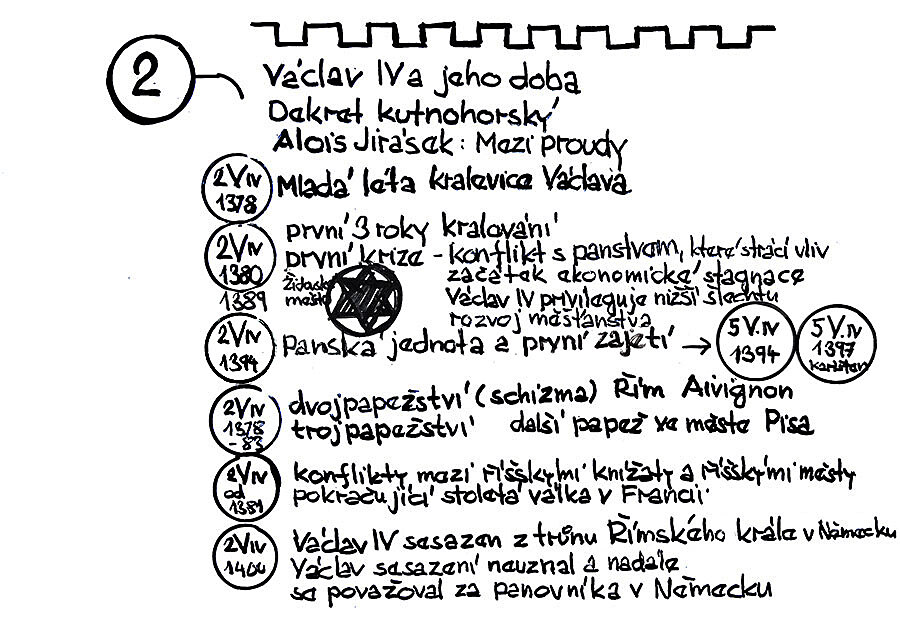 2
Václav IV a jeho doba
Dekret kutnohorský
Alois Jirásek: Mezi proudy
2 V IV 1378 Mladá léta kralevice Václava
první 3 roky kralování
2 V IV 1380 první krize - konflikt s panstvem, které strácí vliv
Židovské začátek ekonomické stagnace
1389 město Václav IV privileguje nižší šlechtu
rozvoj měšťanstva
2 V IV 1394 Panská jednota a první zajetí → 5 V. IV 1394 5 V. IV 1397
2 V IV 1378 - 83 dvojpapežství (schizma) Řím Aivignon
trojpapežství další papež ve měste Pisa
2 V IV od 1381 konflikty mezi říšskými knížaty a říšskými městy
pokračující stoletá válka v Francii
2 V IV 1400 Václav IV sesazen z trůnu Římského krále v Německu
Václav sesazení neuznal a nadále
se považoval za panovníka v Německu